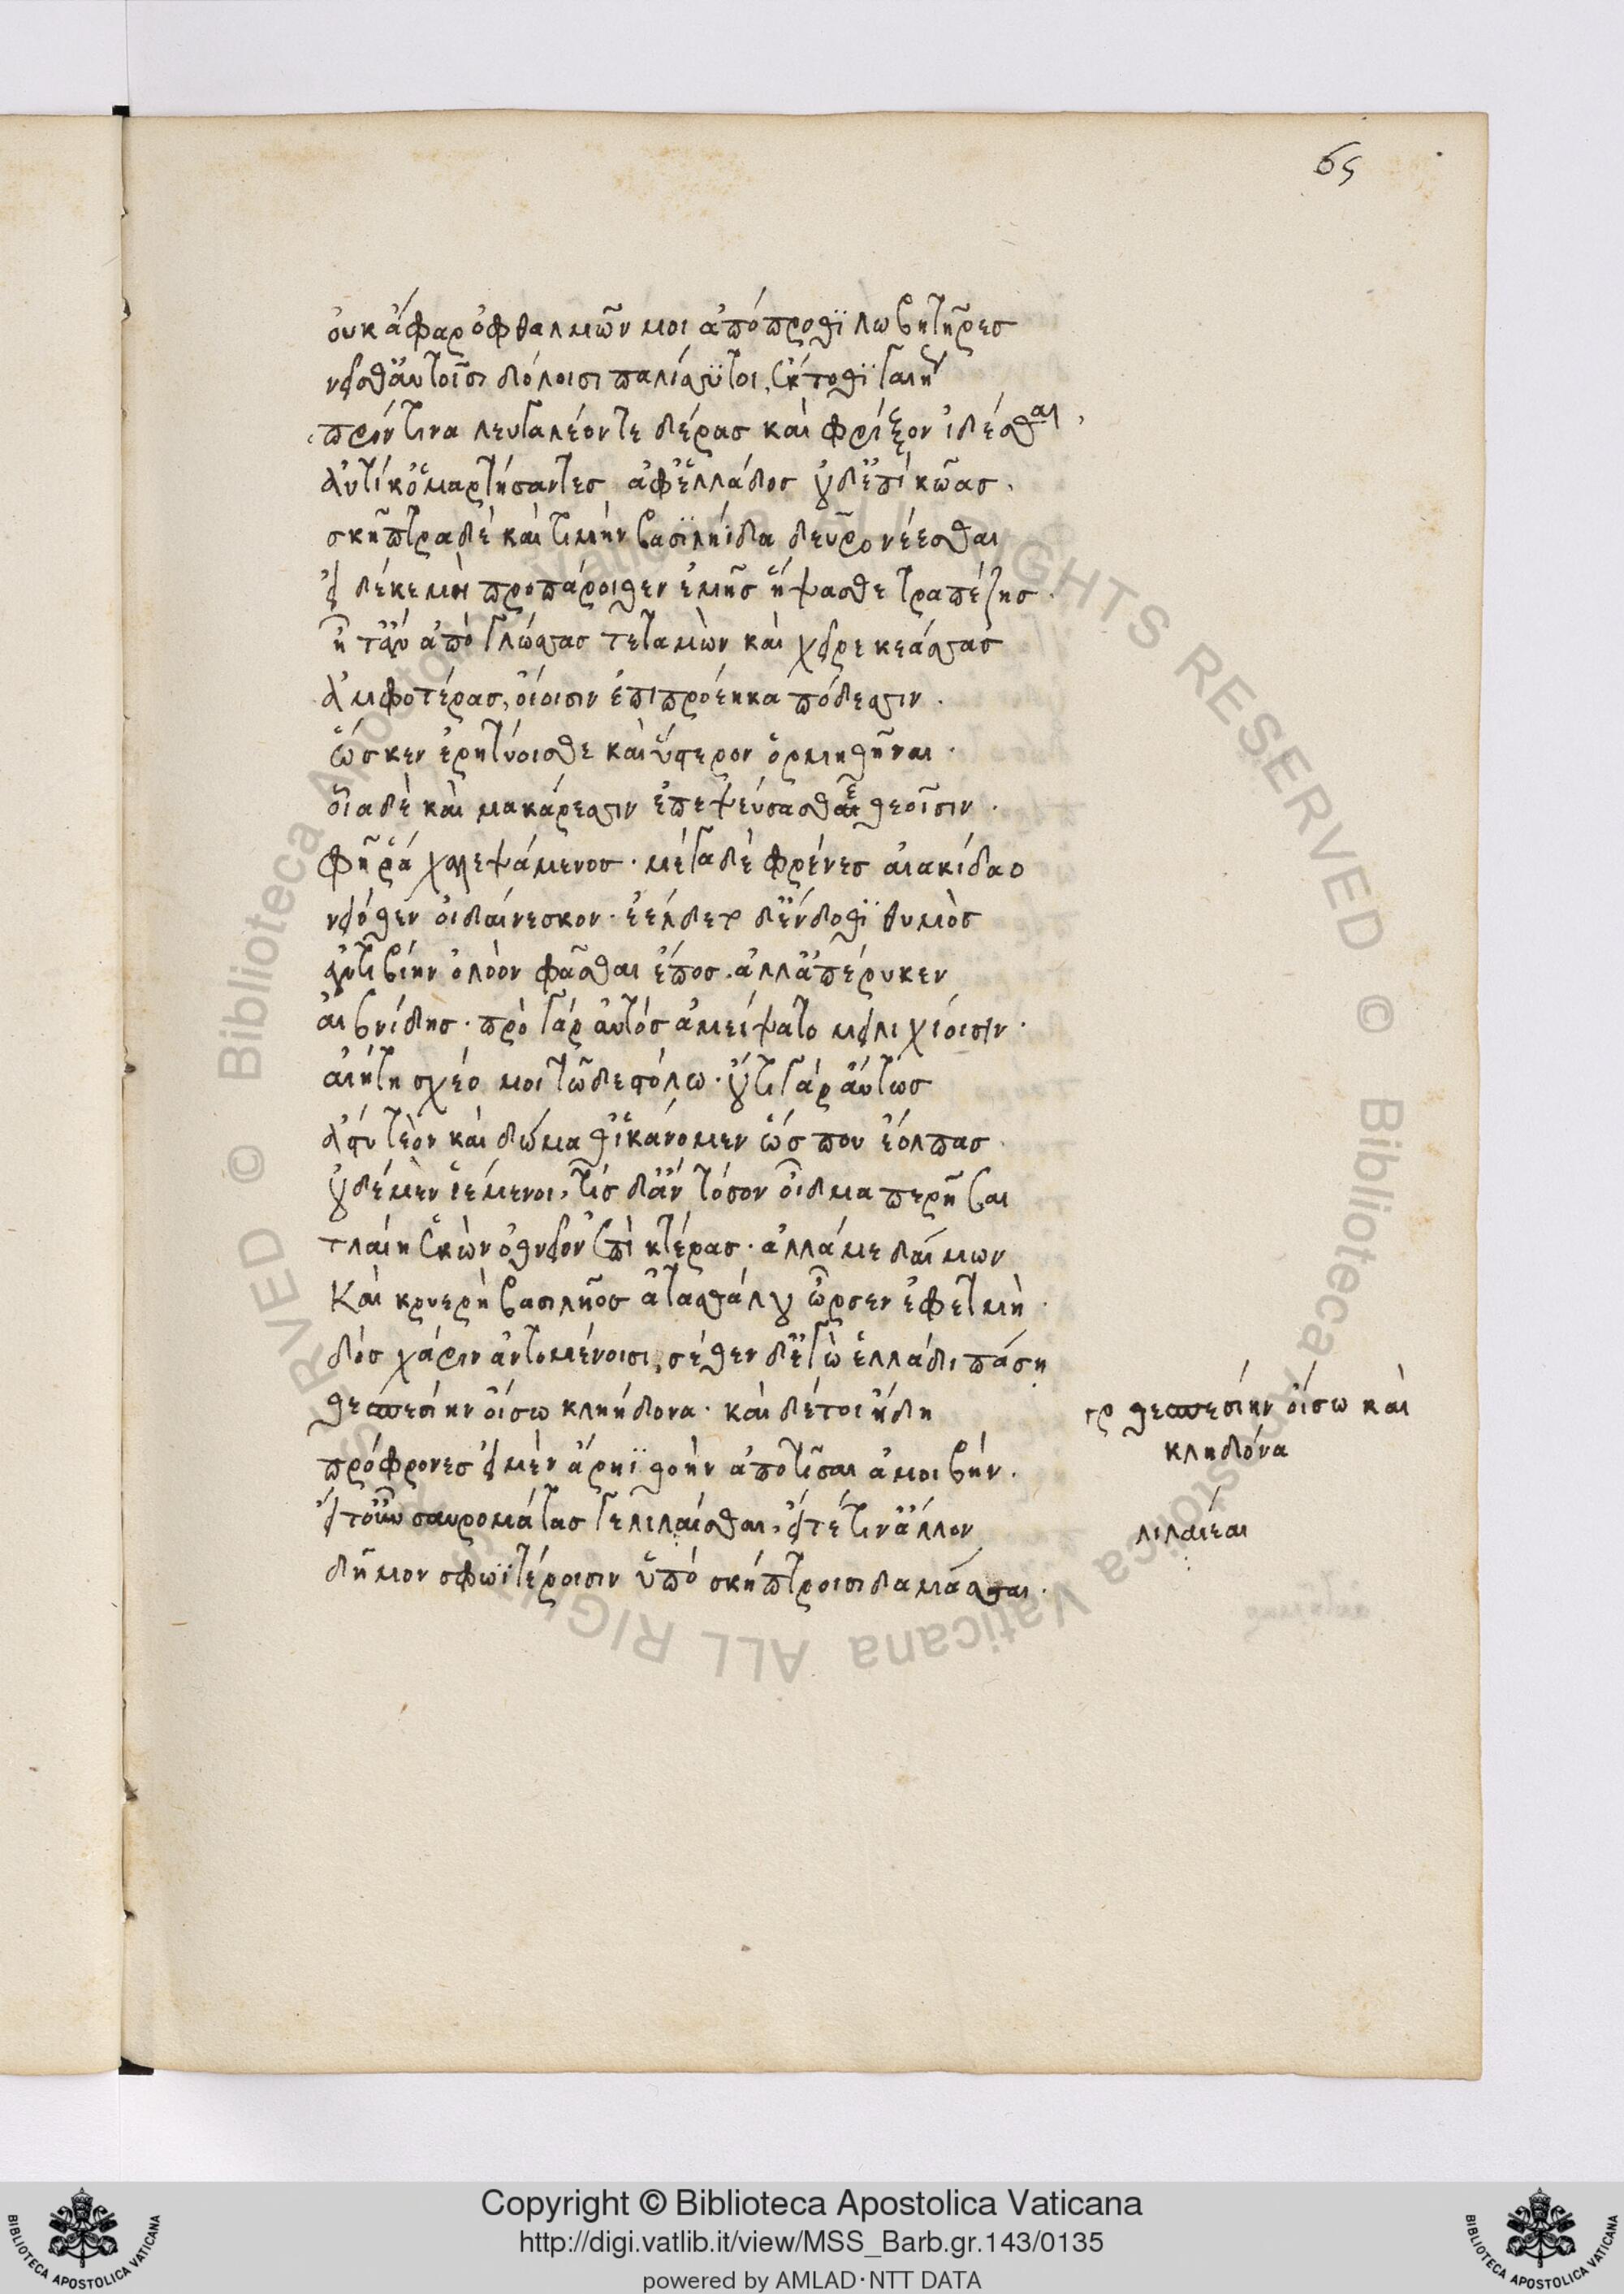 65
οὐκ ἄφαρ ὀφθαλμῶν μοι ἀπόπροθϊ λωβητῆρες
νεῖσθ' αὐτοῖσι δόλοισι παλίσσϋτοι, ἔκτοθϊ γαίης
πρίν τινα λευγαλέον τε δέρας καὶ φρίξον ἰδέσθαι,
αὐτίχ' ὁμαρτήσαντες ἀφ' ἑλλάδος οὐδ' ἐπὶ κῶας.
σκῆπτρα δὲ καὶ τιμὴν βασϊληΐδα δεῦρο νέεσθαι
εἰ δέ κε μὴ προπάροιθεν ἐμῆς ἥψασθε τραπέζης.
ἦ τ' ἂν ἀπὸ γλώσσας τε ταμὼν καὶ χεῖρε κεάσσας
ἀμφοτέρας, οἴοισιν ἐπιπροέηκα πόδεσσιν.
ὥς κεν ἐρητύοισθε καὶ ὕστερον ὁρμηθῆναι.
οἷα δὲ καὶ μακάρεσσιν ἐπεψεύσασθαι θεοῖσιν.
φῆ ῥα χαλεψάμενος. μέγα δὲ φρένες αἰακίδαο
νειόθεν οἰδαίνεσκον. ἐέλδετο δ' ἔνδοθϊ θυμὸς
ἀντιβίην ὀλοὸν φᾶσθαι ἔπος. ἀλλ' ἀπέρυκεν
αἰσονίδης. πρὸ γὰρ αὐτὸς ἀμείψατο μειλιχίοισιν.
αἰήτη σχέο μοι τῷδε στόλω. οὔτι γὰρ αὔτως
ἄστυ τεὸν καὶ δώμαθ' ἱκάνομεν ὥς που ἔολπας.
οὐδὲ μὲν ἱέμενοι, τίς δ' ἂν τόσον οἶδμα περῆσαι
τλαίη ἑκὼν ὀθνεῖον ἐπὶ κτέρας. ἀλλά με δαίμων
Καὶ κρυερὴ βασιλῆος ἀτασθάλου ὦρσεν ἐφετμὴ.
δὸς χάριν ἀντομένοισι, σέθεν δ' ἐγὼ ἑλλάδι πάση
θεσπεσίην οἴσω κληηδόνα. καὶ δέ τοι ἤδη
πρόφρονες εἰμὲν ἄρηϊ θοὴν ἀποτῖσαι ἀμοιβήν.
εἴτ' οὖν σαυρομάτας γε λιλαίσθαι, εἴτέ τιν' ἄλλον
δῆμον σφωϊτέροισιν ὑπὸ σκήπτροισι δαμάσσαι.
γρ θεσπεσίην οἴσω καὶ
κληδόνα
λιλαίεαι
Copyright © Biblioteca Apostolica Vaticana
http://digi.vatlib.it/view/MSS_Barb.gr.143/0135
powered by AMLAD·NTT DATA